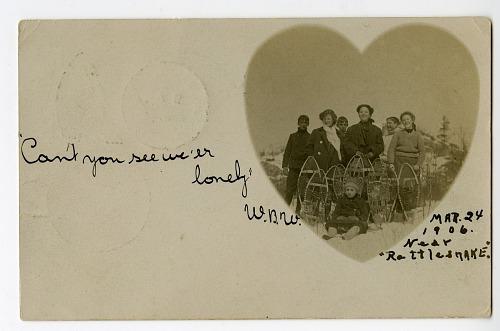 "Can't you see we'er
lonely"
W.B.W.
MAR. 24
1906.
Near
"RattlesNAKE."